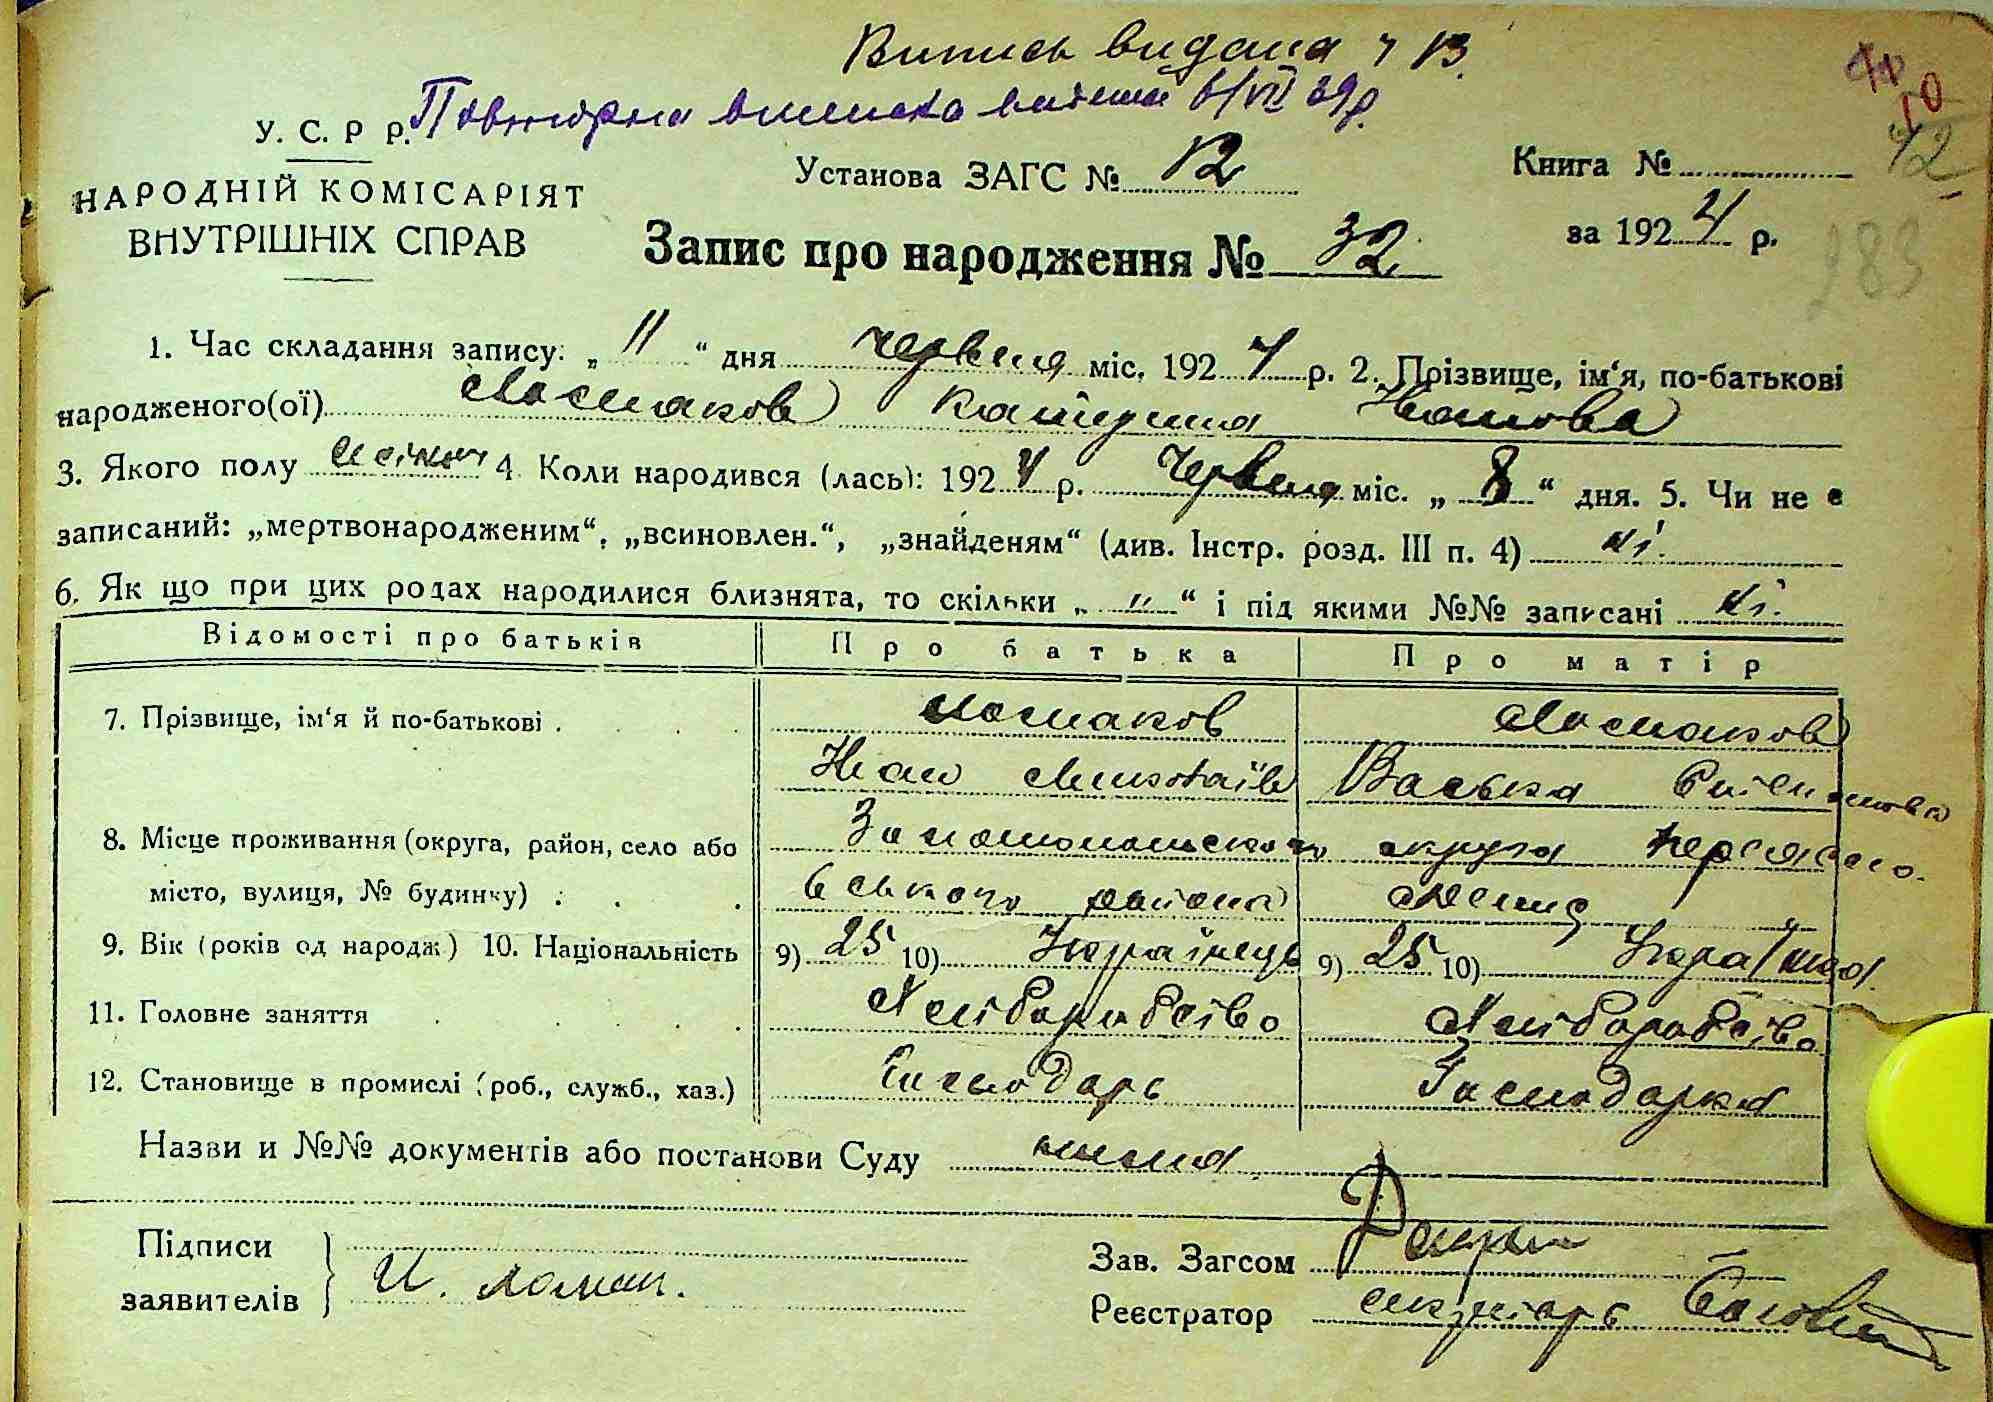 Випись видана ч 13.
Повторна виписка видана 6/VII 39р.
У. С. Р Р.
НАРОДНІЙ КОМІСАРІЯТ
ВНУТРІШНІХ СПРАВ
Установа ЗАГС № 12
Запис про народження № 32
Книга №
за 1924 р.
40
42
283
1. Час складання запису: „ 11 “ дня червня міс. 1924 р. 2. Прізвище, ім‘я, по-батькові
народженого(ої) Ломакова Катерина Іванова
3. Якого полу жіноч 4. Коли народився (лась): 1924 р. Червня міс. „ 8 “ дня. 5. Чи не є
записаний: „мертвонародженим“, „всиновлен.“, „знайденям“ (див. Інстр. розд. III п. 4) ні.
6. Як що при цих родах народилися близнята, то скільки „ " “ і під якими №№ записані ні.
Відомості про батьків Про батька Про матір
7. Прізвище, ім‘я й по-батькові . Ломаков Ломакова
Іван Миколаїв Васька
8. Місце проживання (округа, район, село або округа
місто, вулиця, № будинку) . ського района
9. Вік (років од народж.) 10. Національність 9) 25 10) Українець 9) 25 10) Україн
11. Головне заняття Хліборобство Хліборобство
12. Становище в промислі (роб., служб., хаз.) Господарь Господарка
Назви и №№ документів або постанови Суду нема
Підписи
заявителів И. Ломак.
Зав. Загсом
Реєстратор секретарь